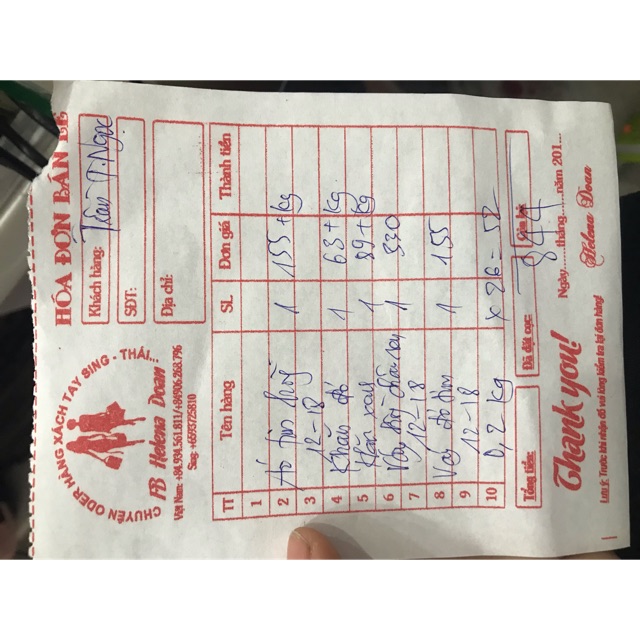 HÓA ĐƠN BÁN LẺ
CHUYÊN ODER HÀNG XÁCH TAY SING - THÁI...
FB Helena Doan
Việt Nam: +84.934.561.811/+84906.268.796
Sing: +6593725810
Khách hàng: Trần T. Ngọc
SĐT:
Địa chỉ:
TT Tên hàng SL Đơn giá Thành tiền
1
2 Áo 1 155 + kg
3 12-18
4 Khăn đỏ 1 63 + kg
5 Khăn 1 89 + kg
6 Váy 1 330
7 12-18
8 Váy đỏ 1 155
9 12-18
10 0,2 kg x 26 = 52
Tổng tiền: Đã đặt cọc: Còn lại
844
Ngày......tháng......năm 201...
Thank you!
Helena Doan
Lưu ý: Trước khi nhận đồ vui lòng kiểm tra lại đơn hàng!